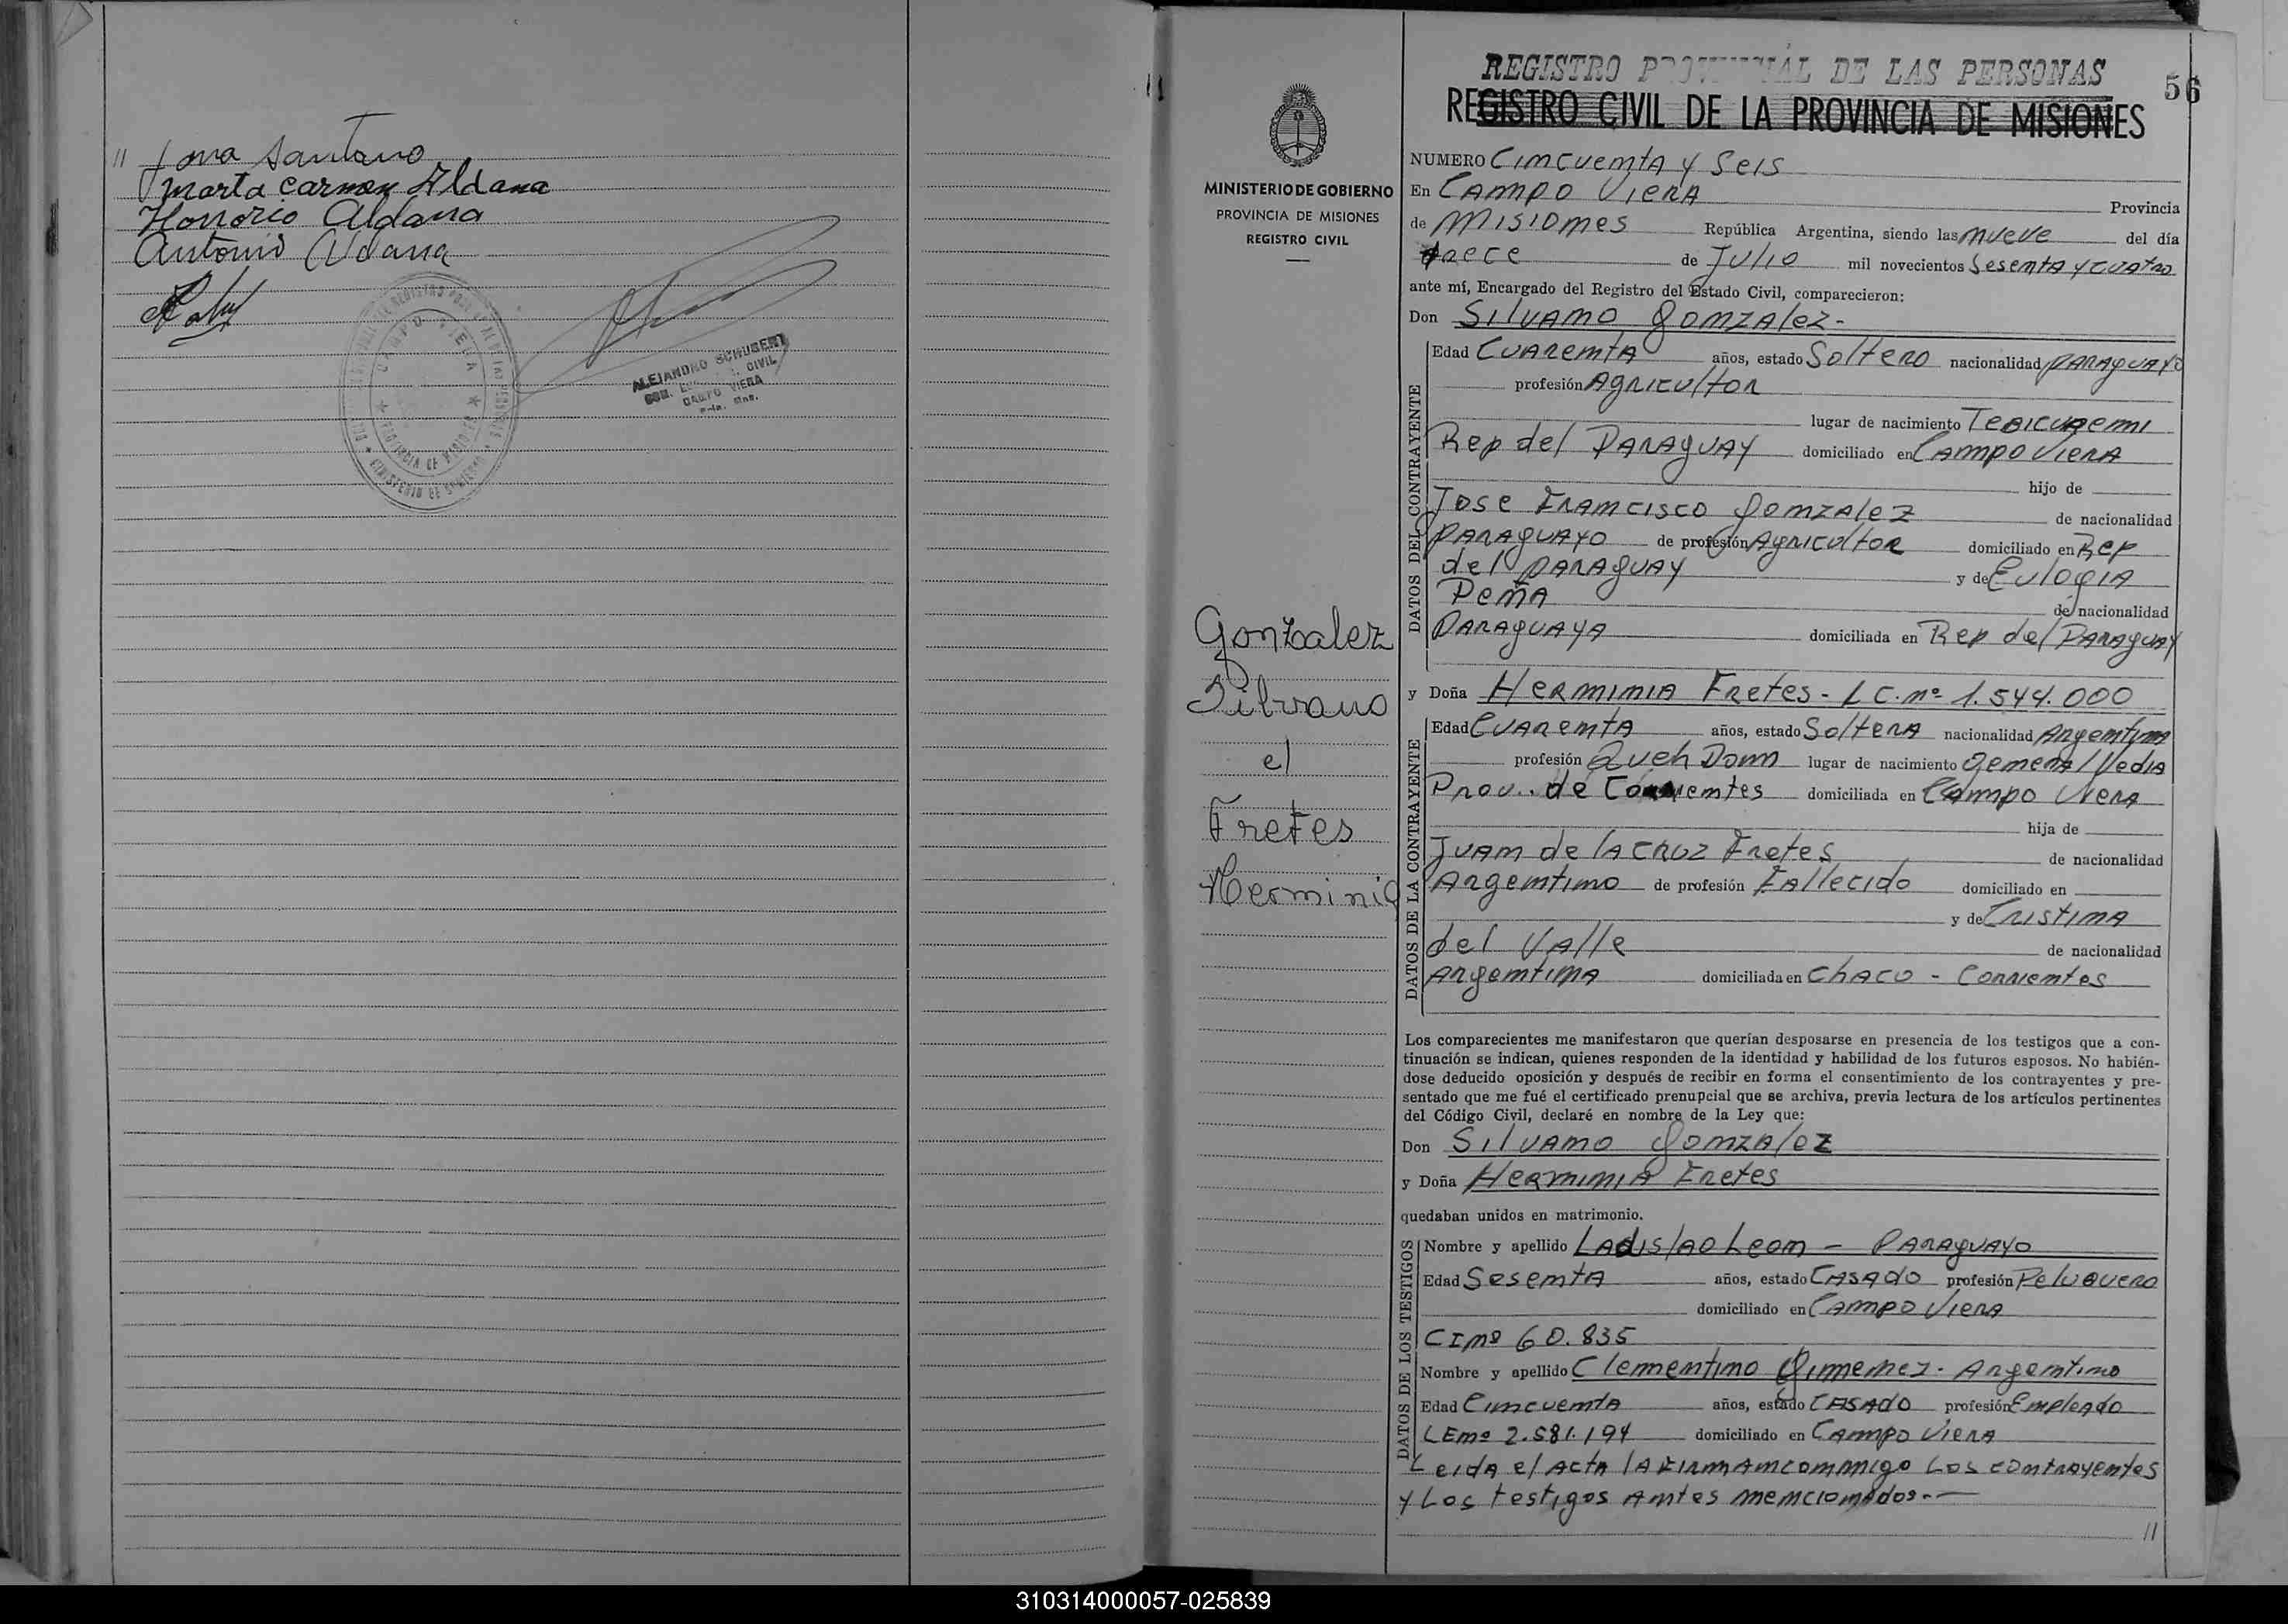 // Jova Santano
Marta Carmen Aldana
Honorio Aldana
Antonio Aldana
CAMPO VIERA
ALEJANDRO SCHUBERT
CIVIL
CAMPO VIERA
Gonzalez
Silvano
el
Fretes
Herminia
MINISTERIO DE GOBIERNO
PROVINCIA DE MISIONES
REGISTRO CIVIL
REGISTRO PROVINCIAL DE LAS PERSONAS
56
REGISTRO CIVIL DE LA PROVINCIA DE MISIONES
NUMERO Cincuenta y Seis
En Campo Viera Provincia
de Misiones República Argentina, siendo las nueve del día
trece de Julio mil novecientos Sesenta y cuatro
ante mí, Encargado del Registro del Estado Civil, comparecieron:
Don Silvano Gonzalez.-
DATOS DEL CONTRAYENTE
Edad Cuarenta años, estado Soltero nacionalidad Paraguayo
profesión Agricultor
lugar de nacimiento Tebicuaremi
Rep del Paraguay domiciliado en Campo Viera
hijo de
Jose Francisco Gonzalez de nacionalidad
Paraguayo de profesión Agricultor domiciliado en Rep
del Paraguay y de Eulogia
Peña de nacionalidad
Paraguaya domiciliada en Rep del Paraguay
y Doña Herminia Fretes - LC. nº 1.544.000
DATOS DE LA CONTRAYENTE
Edad Cuarenta años, estado Soltera nacionalidad Argentina
profesión Queh Dom lugar de nacimiento General Vedia
Prov. de Corrientes domiciliada en Campo Viera
hija de
Juan de la Cruz Fretes de nacionalidad
Argentino de profesión Fallecido domiciliado en
y de Cristina
del Valle de nacionalidad
Argentina domiciliada en Chaco - Corrientes
Los comparecientes me manifestaron que querían desposarse en presencia de los testigos que a con-
tinuación se indican, quienes responden de la identidad y habilidad de los futuros esposos. No habién-
dose deducido oposición y después de recibir en forma el consentimiento de los contrayentes y pre-
sentado que me fué el certificado prenupcial que se archiva, previa lectura de los artículos pertinentes
del Código Civil, declaré en nombre de la Ley que:
Don Silvano Gonzalez
y Doña Herminia Fretes
quedaban unidos en matrimonio.
DATOS DE LOS TESTIGOS
Nombre y apellido Ladislao Leon - Paraguayo
Edad Sesenta años, estado Casado profesión Peluquero
domiciliado en Campo Viera
CI nº 60.835
Nombre y apellido Clementino Gimenez - Argentino
Edad Cincuenta años, estado Casado profesión Empleado
LE nº 2.581.194 domiciliado en Campo Viera
Leida el acta la firman conmigo los contrayentes
y Los testigos antes mencionados.-
//
310314000057-025839